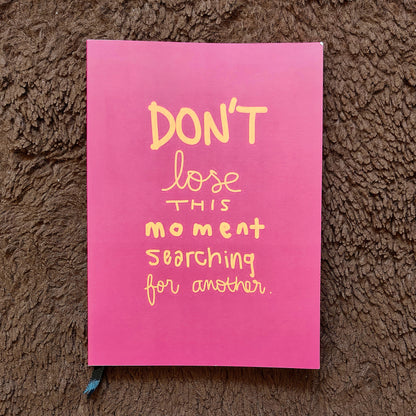 DON'T
lose
THIS
moment
searching
for another.